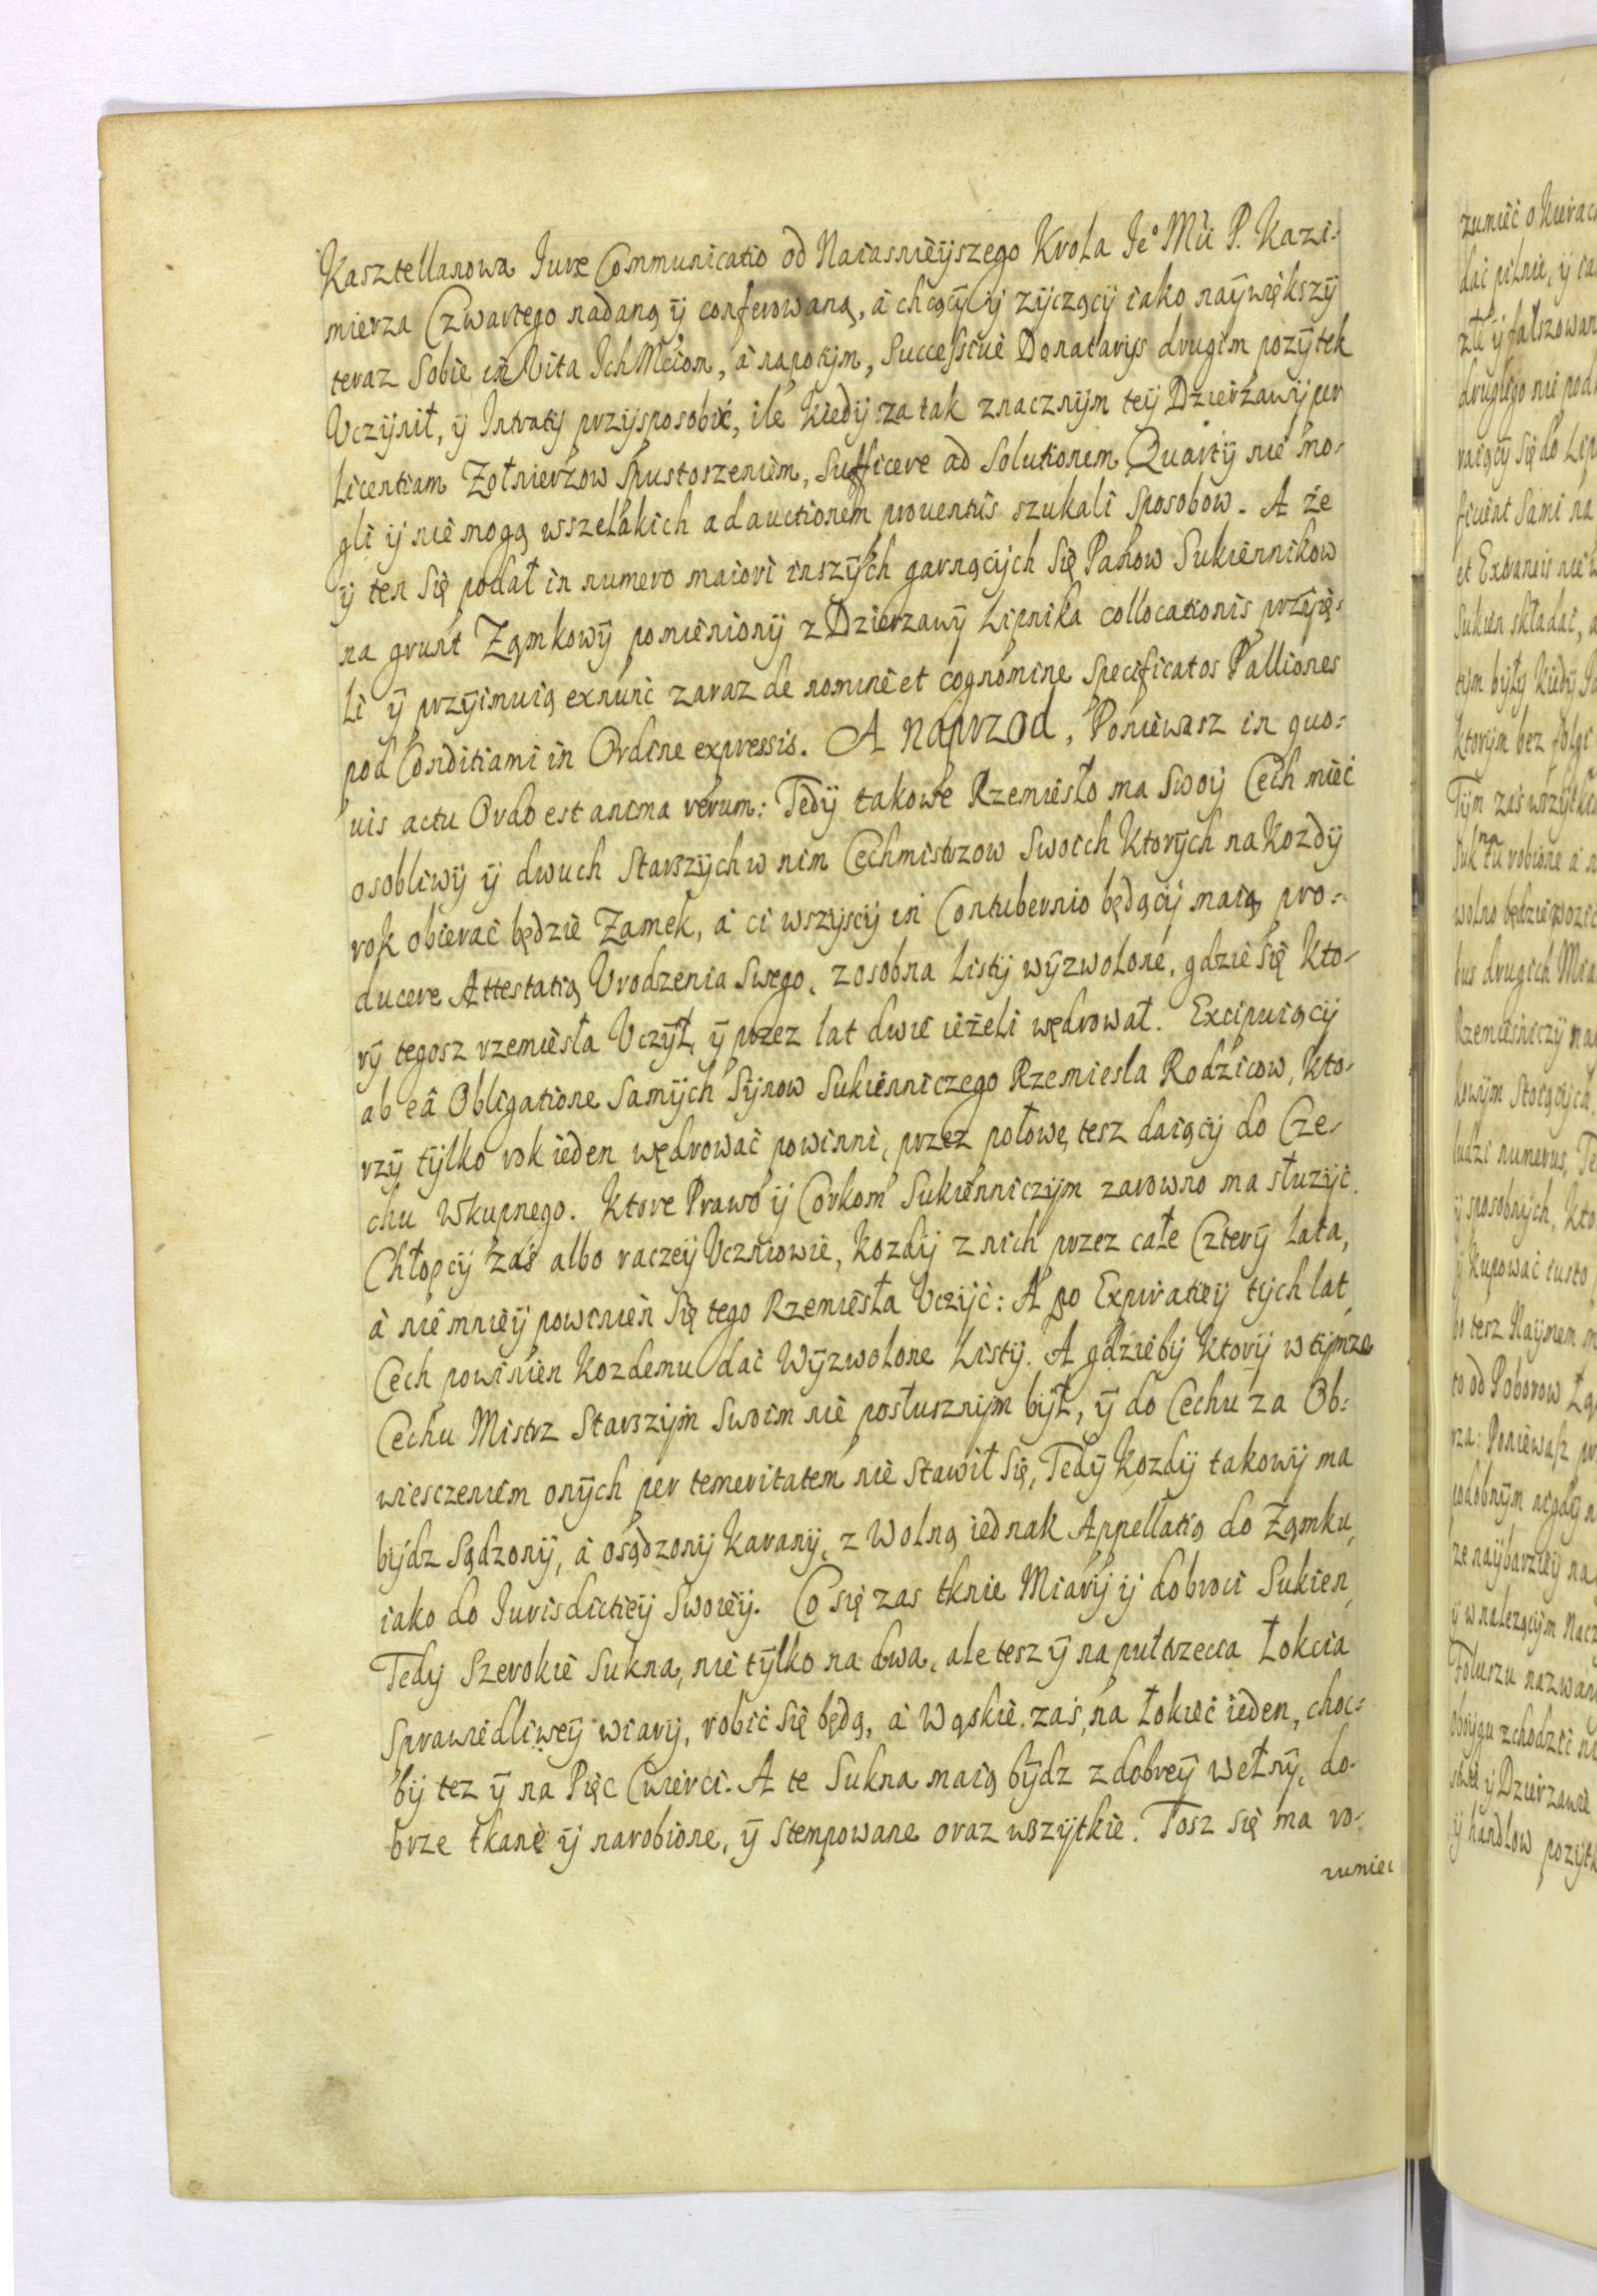 Kasztellanowa Iure Communicatio od Naiasnieÿszego Krola Ieº Mci P. Kazi-
mierza Czwartego nadaną ÿ conferowaną, à chcącÿ ÿ zÿczącÿ iako naÿwiększÿ
teraz Sobie in Vita Ich Mciom, à napotÿm, Successive Donatarÿs drugim pozÿtek
Vczÿnił, ÿ Intratÿ przÿsposobić, ile kiedÿ za tak znacznÿm teÿ Dzierżawÿ per
Licentiam Zołnierzow Spustoszeniem, Sufficere ad Solutionem Quartÿ nie mo-
gli ÿ nie mogą wszelakich ad auctionem prouentus szukali Sposobow. A że
ÿ ten Się podał in numero maiori inszÿch garnącÿch Się Panow Sukiennikow
na grunt Ząmkowÿ pomienionÿ z Dzierzawÿ Lipnika collocationis przÿię-
li ÿ przÿimuią exnunc zaraz de nomine et cognomine Specificatos Palliones
pod Conditiami in Ordine expressis. A naprzod, Poniewasz in quo-
uis actu Ordo est anima rerum: Tedÿ takowe Rzemiesło ma Swoÿ Cech mieć
osobliwÿ ÿ dwuch Starszÿch w nim Cechmistrzow Swoich Ktorÿch na Kozdÿ
rok obierać będzie Zamek, à ci wszÿscÿ in Contubernio będącÿ maią pro-
ducere Attestatią Vrodzenia Swego, zosobna Listÿ wÿzwolone, gdzie Się Kto-
rÿ tegosz rzemiesła Vczÿł, ÿ przez lat dwie ieżeli wędrował. Excipuiącÿ
ab eâ Obligatione Samÿch Sÿnow Sukienniczego Rzemiesla Rodzicow, Kto-
rzÿ tÿlko rok ieden wędrować powinni, przez połowę tesz daiącÿ do Ce-
chu Wkupnego. Ktore Prawo ÿ Corkom Sukienniczÿm zarowno ma słuzÿć.
Chłopcÿ zaś albo raczeÿ Vczniowie, Kozdÿ z nich przez całe Czterÿ lata,
à nie mnieÿ powinien Się tego Rzemiesła Vczÿć: A po Expiratieÿ tÿch lat,
Cech powinien Kozdemu dać Wÿzwolone Listÿ. A gdzie bÿ Ktorÿ w tÿmze
Cechu Mistrz Starszÿm Swoim nie posłusznÿm bÿł, ÿ do Cechu za Ob-
wiesczeniem onÿch per temeritatem nie Stawił Się, Tedÿ Kozdÿ takowÿ ma
bÿdz Sądzonÿ, à osądzonÿ Karanÿ, z Wolną iednak Appellatią do Ząmku,
iako do Iurisdictieÿ Swoieÿ. Co się zas tknie Miarÿ ÿ dobroci Sukien,
Tedÿ Szerokie Sukna, nie tÿlko na dwa, ale tesz ÿ na pułtrzecia Łokcia
Sprawiedliweÿ wiarÿ, robić Się będą, à Wąskie zaś, na Łokieć ieden, choc-
bÿ tez ÿ na Pięc Cwierci. A te Sukna maią bÿdz z dobreÿ wełnÿ, do-
brze tkane ÿ narobione, ÿ Stempowane oraz wszÿtkie. Tosz Się ma ro-
zumiec